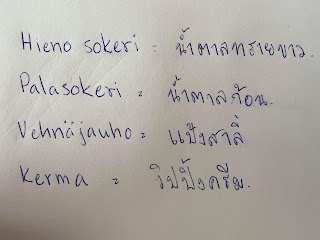 Hieno sokeri = น้ำตาลทรายขาว.
Palasokeri = น้ำตาลก้อน.
Vehnäjauho = แป้งสาลี่
Kerma = วิปปิ้งครีม.